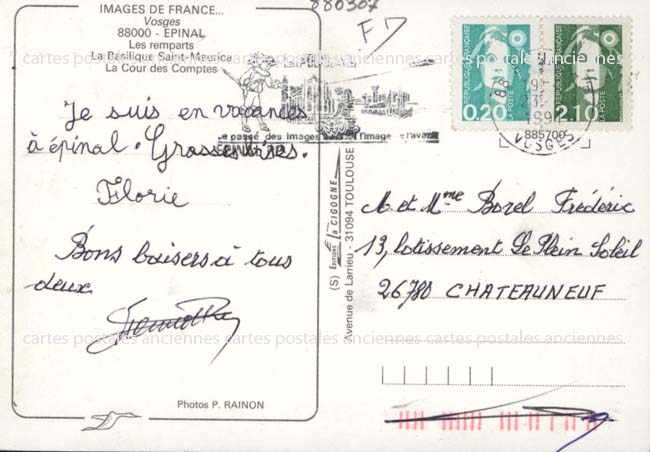 880307
FD
IMAGES DE FRANCE...
Vosges
88000 - EPINAL
Les remparts
La Basilique Saint-Maurice
La Cour des Comptes
Je suis en vacances
à épinal. Grosses bises.
Florie
Bons baisers à tous
deux
Photos P. RAINON
(S) Editions la CIGOGNE
Avenue de Larrieu - 31094 TOULOUSE
Le passé des images l'image
EPINAL
REPUBLIQUE FRANÇAISE
0,20 LA POSTE
REPUBLIQUE FRANÇAISE
2,10 LA POSTE
88
VOSGES
885700
M et Mme Borel Frédéric
13, lotissement Le Plein Soleil
26780 CHATEAUNEUF
cartes postales anciennes cartes postales anciennes cartes postales anciennes
cartes postales anciennes cartes postales anciennes cartes postales anciennes